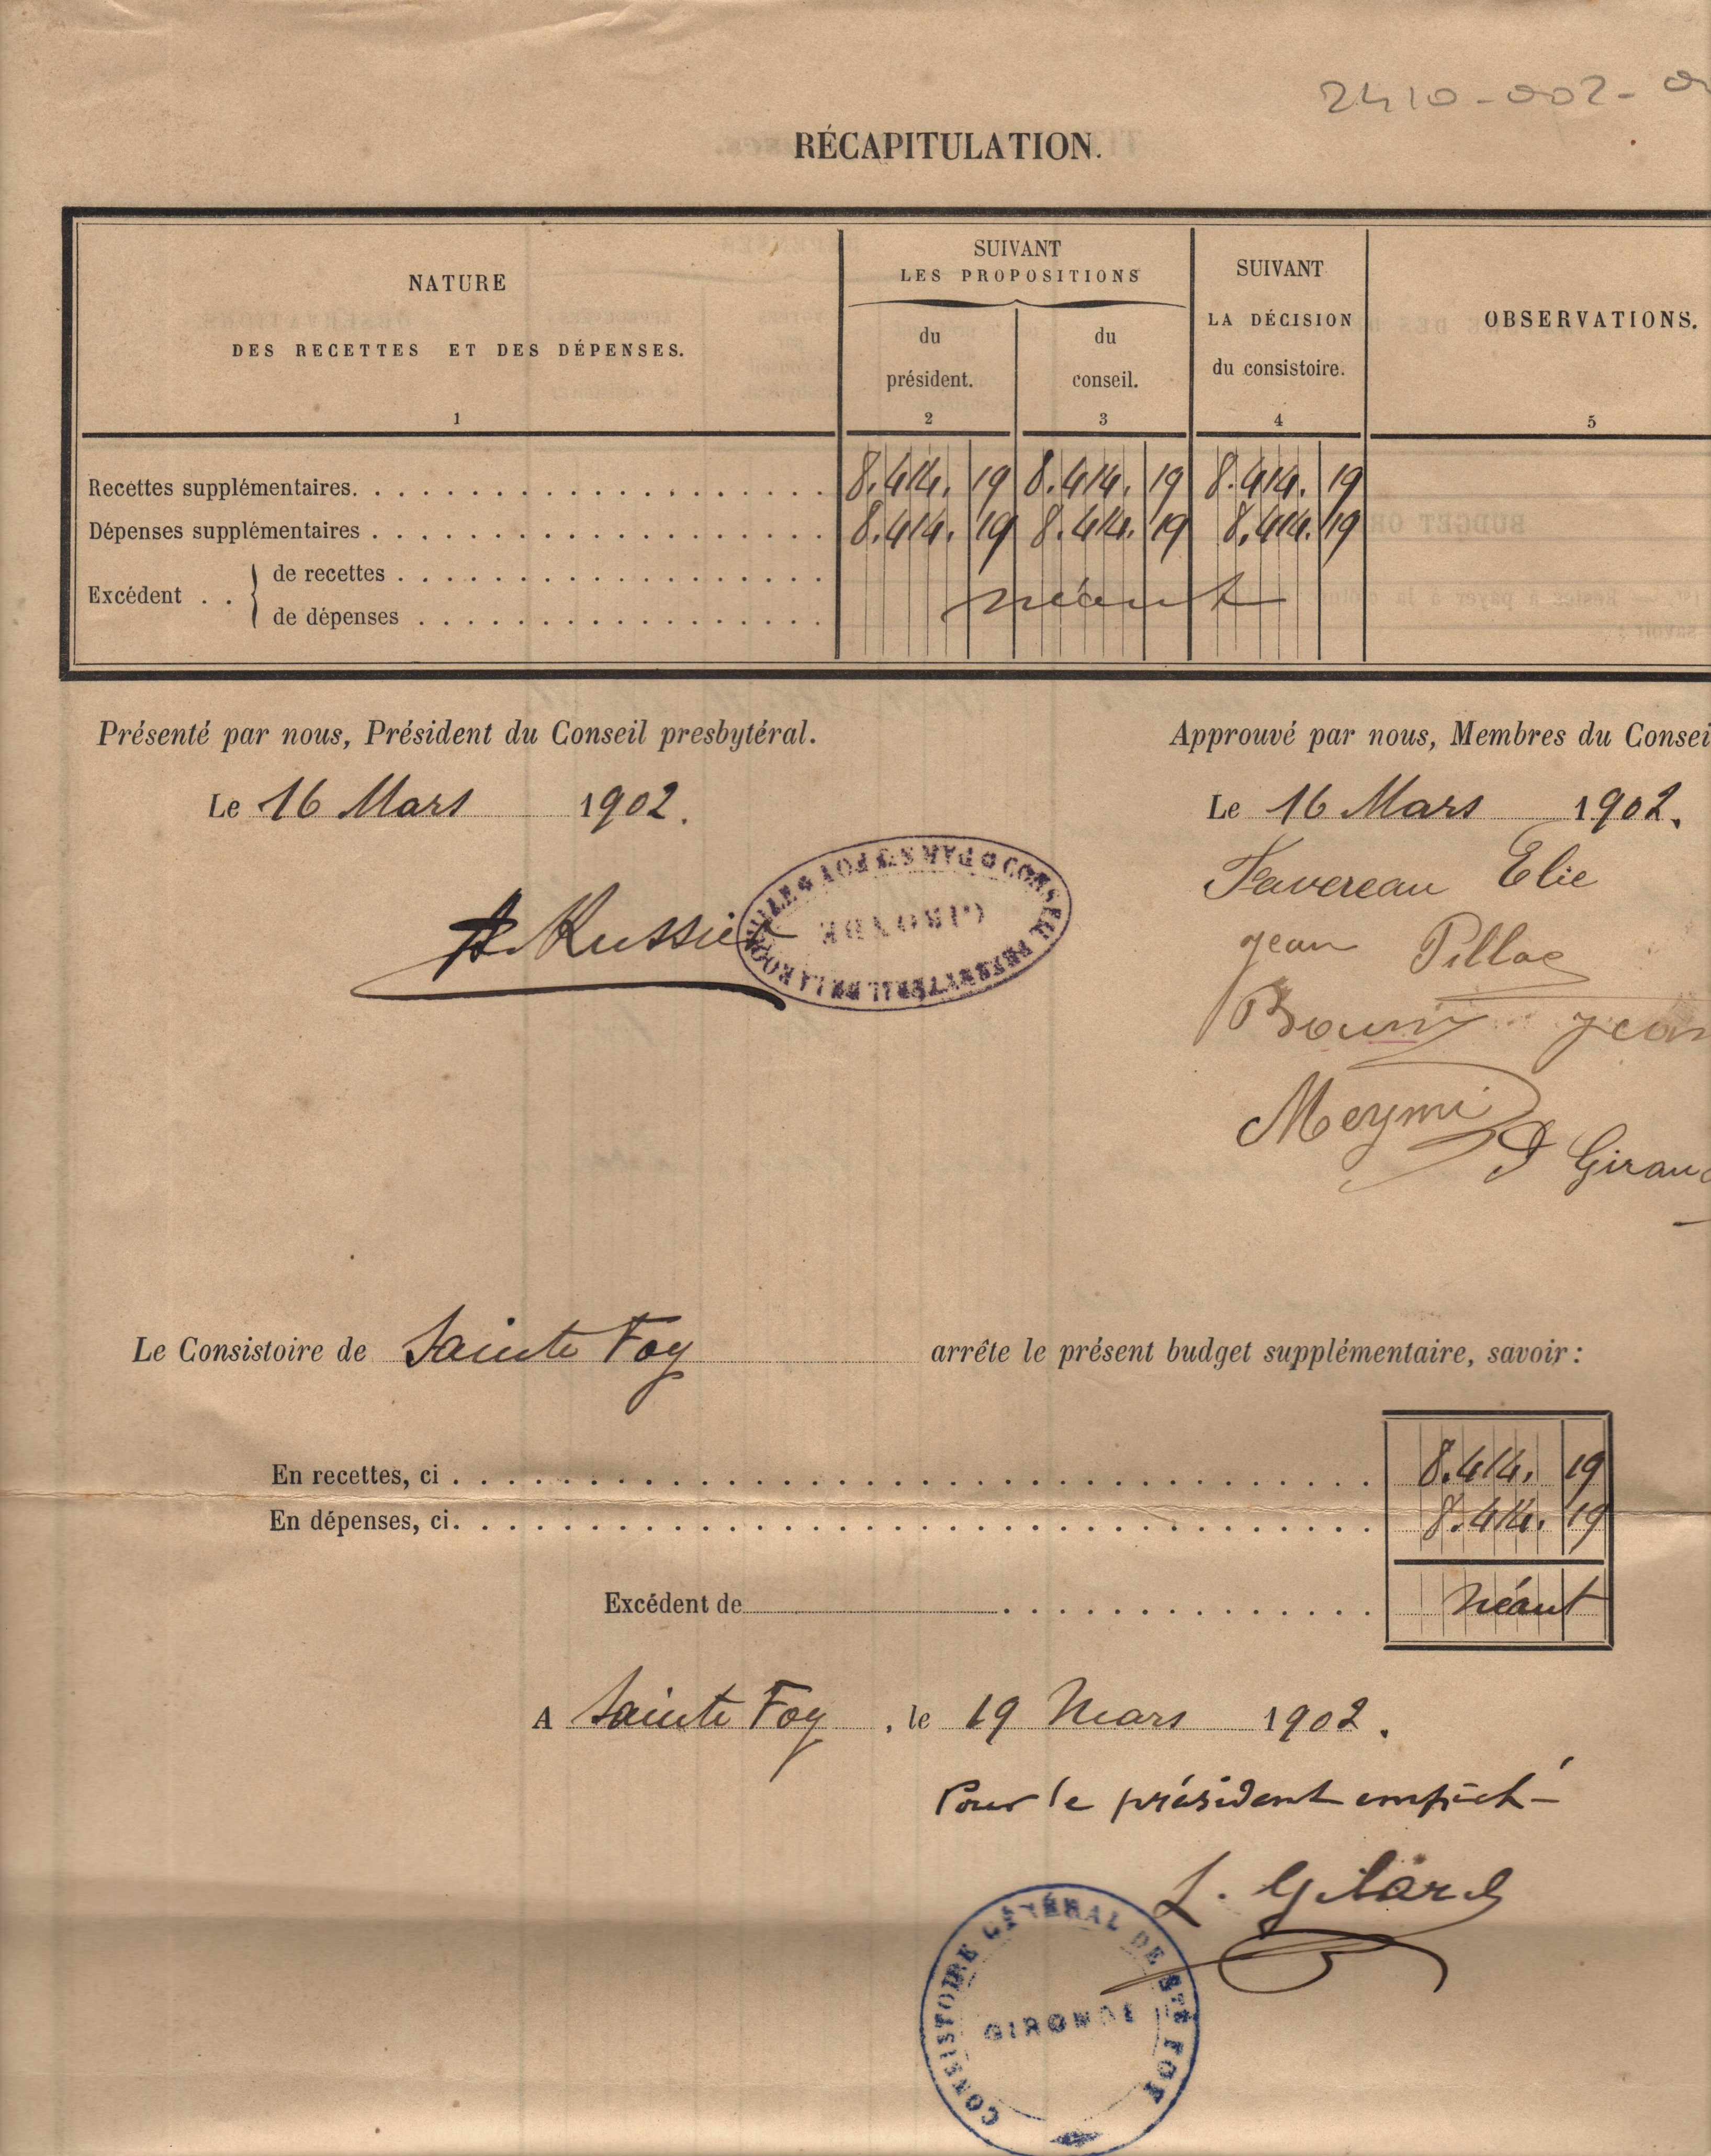 2410-002-
RÉCAPITULATION.
NATURE
DES RECETTES ET DES DÉPENSES.
1
SUIVANT
LES PROPOSITIONS
du
président.
2
du
conseil.
3
SUIVANT
LA DÉCISION
du consistoire.
4
OBSERVATIONS.
5
Recettes supplémentaires. 8.414. 19 8.414. 19 8.414. 19
Dépenses supplémentaires 8.414. 19 8.414. 19 8.414. 19
Excédent . . de recettes
de dépenses
néant
Présenté par nous, Président du Conseil presbytéral.
Le 16 Mars 1902.
CONSEIL PRESBYTÉRAL DE LA ROQUILLE PAR STE FOY
GIRONDE
Approuvé par nous, Membres du Consei
Le 16 Mars 1902.
Favereau Elie
Jean Pillac
Jean
Meymi
Giraud
Le Consistoire de Sainte Foy arrête le présent budget supplémentaire, savoir :
En recettes, ci 8.414. 19
En dépenses, ci. 8.414. 19
Excédent de néant
A Sainte Foy, le 19 Mars 1902.
Pour le président empêché
CONSISTOIRE GÉNÉRAL DE STE FOY
GIRONDE